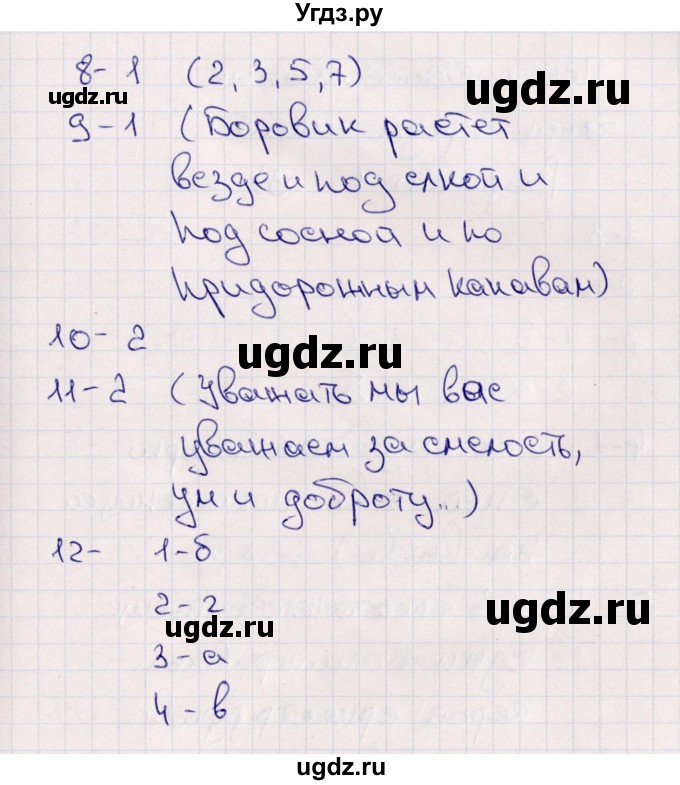 Угдз.ру
8- 1 (2, 3, 5, 7)
ugdz.ru
9-1 (Боровик растет
везде и под елкой и
под сосной и по
придорожным канавам)
10- 2
ugdz.ru
11-2 (Уважать мы вас
уважаем за смелость,
ум и доброту...)
12- 1-б
2-г
ugdz.ru
ugdz.ru
3-а
4-в
ugdz.ru